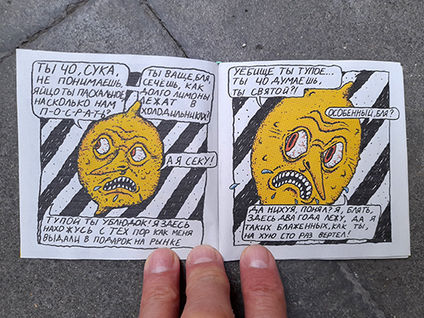 ТЫ ЧО, СУКА,
НЕ ПОНИМАЕШЬ,
ЯЙЦО ТЫ ПАСХАЛЬНОЕ,
НАСКОЛЬКО НАМ
П-О-С-Р-А-Т-Ь?
ТЫ ВАЩЕ, БЛЯ,
СЕЧЕШЬ, КАК
ДОЛГО ЛИМОНЫ
ЛЕЖАТ В
ХОЛОДИЛЬНИКАХ?
А Я СЕКУ!
ТУПОЙ ТЫ УБЛЮДОК! Я ЗДЕСЬ
НАХОЖУСЬ С ТЕХ ПОР КАК МЕНЯ
ВЫДАЛИ В ПОДАРОК НА РЫНКЕ
УЕБИЩЕ ТЫ ТУПОЕ...
ТЫ ЧО ДУМАЕШЬ,
ТЫ СВЯТОЙ?!
ОСОБЕННЫЙ, БЛЯ?
ДА НИХУЯ, ПОНЯЛ? Я, БЛЯТЬ,
ЗДЕСЬ ДВА ГОДА ЛЕЖУ, ДА Я
ТАКИХ БЛАЖЕННЫХ, КАК ТЫ,
НА ХУЮ СТО РАЗ ВЕРТЕЛ!